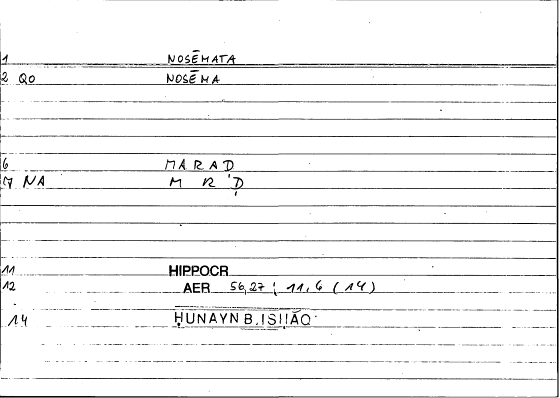 1 NOSĒMATA
2 QO NOSĒMA
6 MARAD
7 NA M R Ḍ
11 HIPPOCR
12 AER 56,27 ; 11,6 (14)
14 ḤUNAYN B. ISḤĀQ